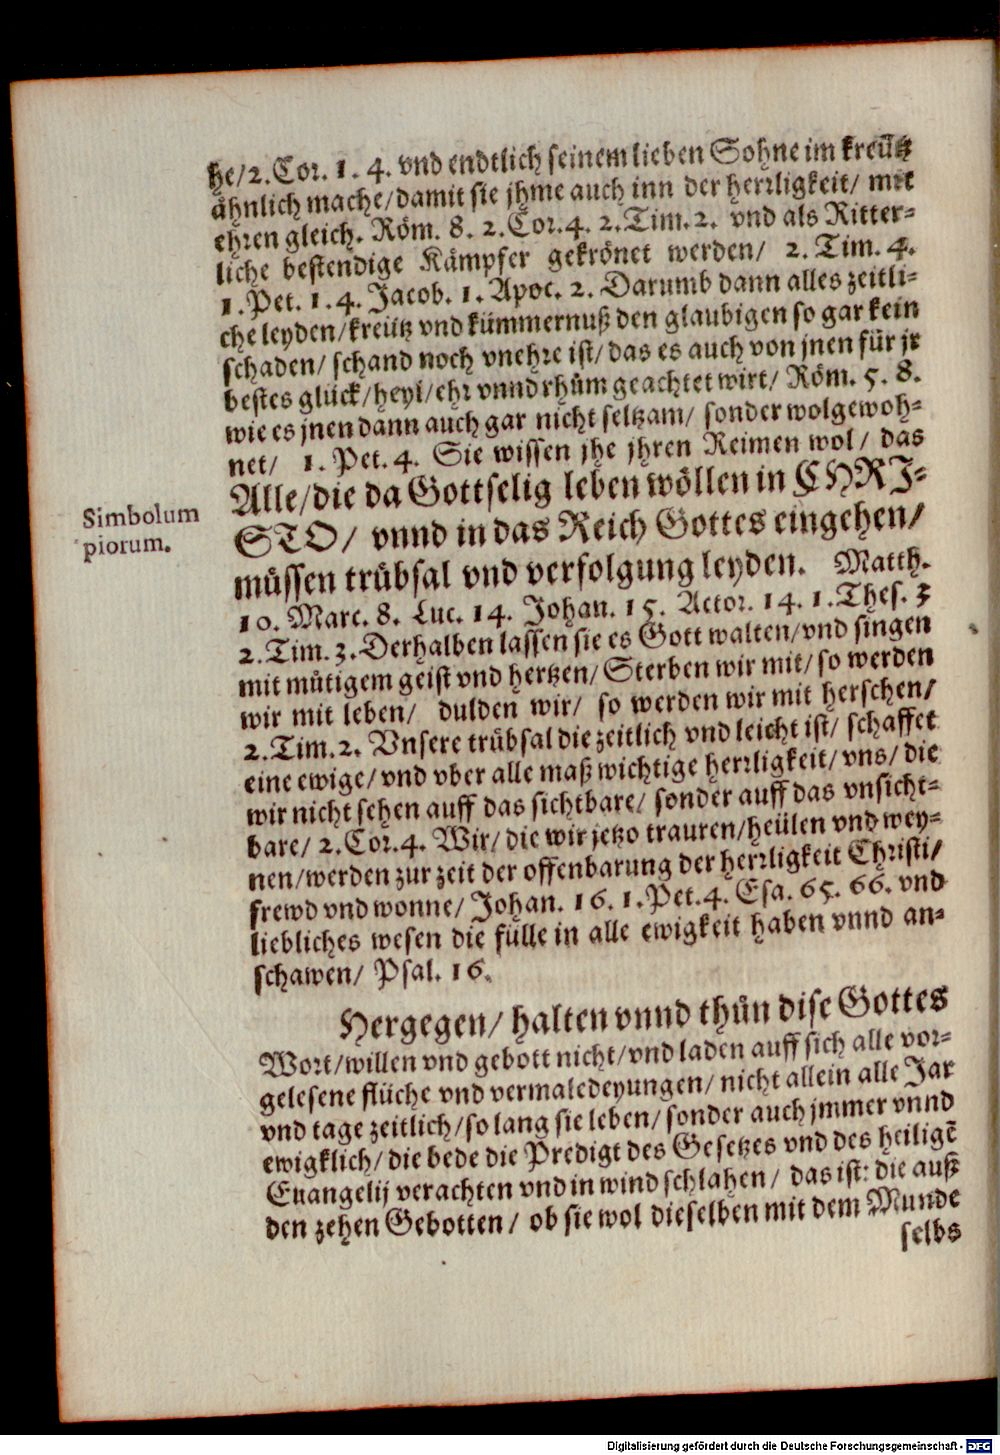 he/ 2. Cor. 1. 4. vnd endtlich seinem lieben Sohne im kreütz
ähnlich mache/ damit sie jhme auch inn der herrligkeit/ mit
ehren gleich. Röm. 8. 2. Cor. 4. 2. Tim. 2. vnd als Ritter-
liche bestendige Kämpfer gekrönet werden/ 2. Tim. 4.
1. Pet. 1. 4. Jacob. 1. Apoc. 2. Darumb dann alles zeitli-
che leyden/ kreütz vnd kümmernuß den glaubigen so gar kein
schaden/ schand noch vnehre ist/ das es auch von jnen für jr
bestes glück/ heyl/ ehr vnnd rhům geachtet wirt/ Röm. 5. 8.
wie es jnen dann auch gar nicht seltzam/ sonder wolgewoh-
net/ 1. Pet. 4. Sie wissen jhe jhren Reimen wol/ das
Alle/ die da Gottselig leben wöllen in CHRI-
STO/ vnnd in das Reich Gottes eingehen/
müssen trübsal vnd verfolgung leyden. Matth.
Simbolum
piorum.
10. Marc. 8. Luc. 14. Johan. 15. Actor. 14. 1. Thes. 3
2. Tim. 3. Derhalben lassen sie es Gott walten/ vnd singen
mit mütigem geist vnd hertzen/ Sterben wir mit/ so werden
wir mit leben/ dulden wir/ so werden wir mit herschen/
2. Tim. 2. Vnsere trübsal die zeitlich vnd leicht ist/ schaffet
eine ewige/ vnd vber alle maß wichtige herrligkeit/ vns/ die
wir nicht sehen auff das sichtbare/ sonder auff das vnsicht-
bare/ 2. Cor. 4. Wir/ die wir jetzo trauren/ heülen vnd wey-
nen/ werden zur zeit der offenbarung der herrligkeit Christi/
frewd vnd wonne/ Johan. 16. 1. Pet. 4. Esa. 65. 66. vnd
liebliches wesen die fülle in alle ewigkeit haben vnnd an-
schawen/ Psal. 16.
Hergegen/ halten vnnd thůn dise Gottes
Wort/ willen vnd gebott nicht/ vnd laden auff sich alle vor-
gelesene flüche vnd vermaledeyungen/ nicht allein alle Jar
vnd tage zeitlich/ so lang sie leben/ sonder auch jmmer vnnd
ewigklich/ die bede die Predigt des Gesetzes vnd des heiligē
Euangelij verachten vnd in wind schlahen/ das ist: die auß
den zehen Gebotten/ ob sie wol dieselben mit dem Munde
selbs
Digitalisierung gefördert durch die Deutsche Forschungsgemeinschaft - DFG